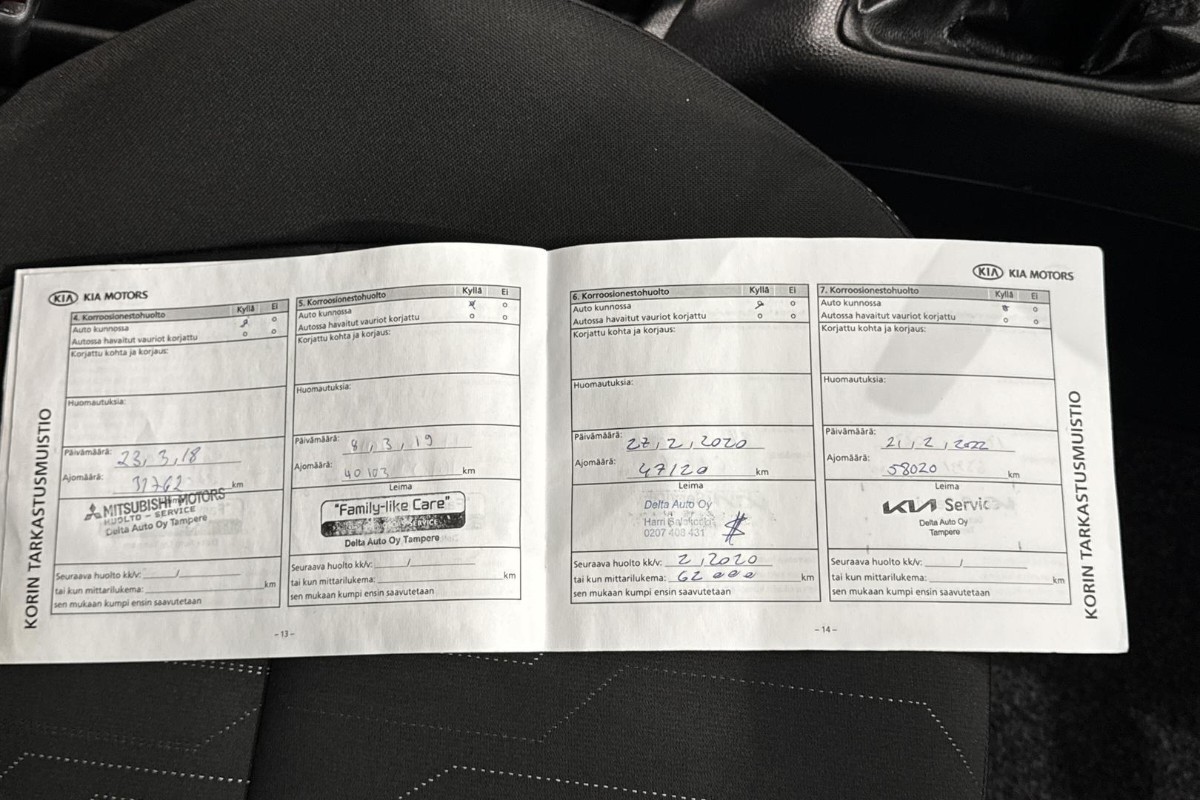 KIA KIA MOTORS
KORIN TARKASTUSMUISTIO
4. Korroosionestohuolto Kyllä Ei
Auto kunnossa
Autossa havaitut vauriot korjattu
Korjattu kohta ja korjaus:
Huomautuksia:
Päivämäärä: 23,3,18
Ajomäärä: 31762 km
MITSUBISHI MOTORS
HUOLTO - SERVICE
Delta Auto Oy Tampere
Seuraava huolto kk/v: /
tai kun mittarilukema: km
sen mukaan kumpi ensin saavutetaan
5. Korroosionestohuolto Kyllä Ei
Auto kunnossa
Autossa havaitut vauriot korjattu
Korjattu kohta ja korjaus:
Huomautuksia:
Päivämäärä: 8,3,19
Ajomäärä: 40103 km
Leima
"Family-like Care"
SERVICE
Delta Auto Oy Tampere
Seuraava huolto kk/v: /
tai kun mittarilukema: km
sen mukaan kumpi ensin saavutetaan
- 13 -
6. Korroosionestohuolto Kyllä Ei
Auto kunnossa
Autossa havaitut vauriot korjattu
Korjattu kohta ja korjaus:
Huomautuksia:
Päivämäärä: 27,2,2020
Ajomäärä: 47120 km
Leima
Delta Auto Oy
Harri
0207 408 431
Seuraava huolto kk/v: 2,2020
tai kun mittarilukema: 62000 km
sen mukaan kumpi ensin saavutetaan
KIA KIA MOTORS
7. Korroosionestohuolto Kyllä Ei
Auto kunnossa
Autossa havaitut vauriot korjattu
Korjattu kohta ja korjaus:
Huomautuksia:
Päivämäärä: 21,2,2022
Ajomäärä: 58020 km
Leima
KIA Service
Delta Auto Oy
Tampere
Seuraava huolto kk/v: /
tai kun mittarilukema: km
sen mukaan kumpi ensin saavutetaan
- 14 -
KORIN TARKASTUSMUISTIO